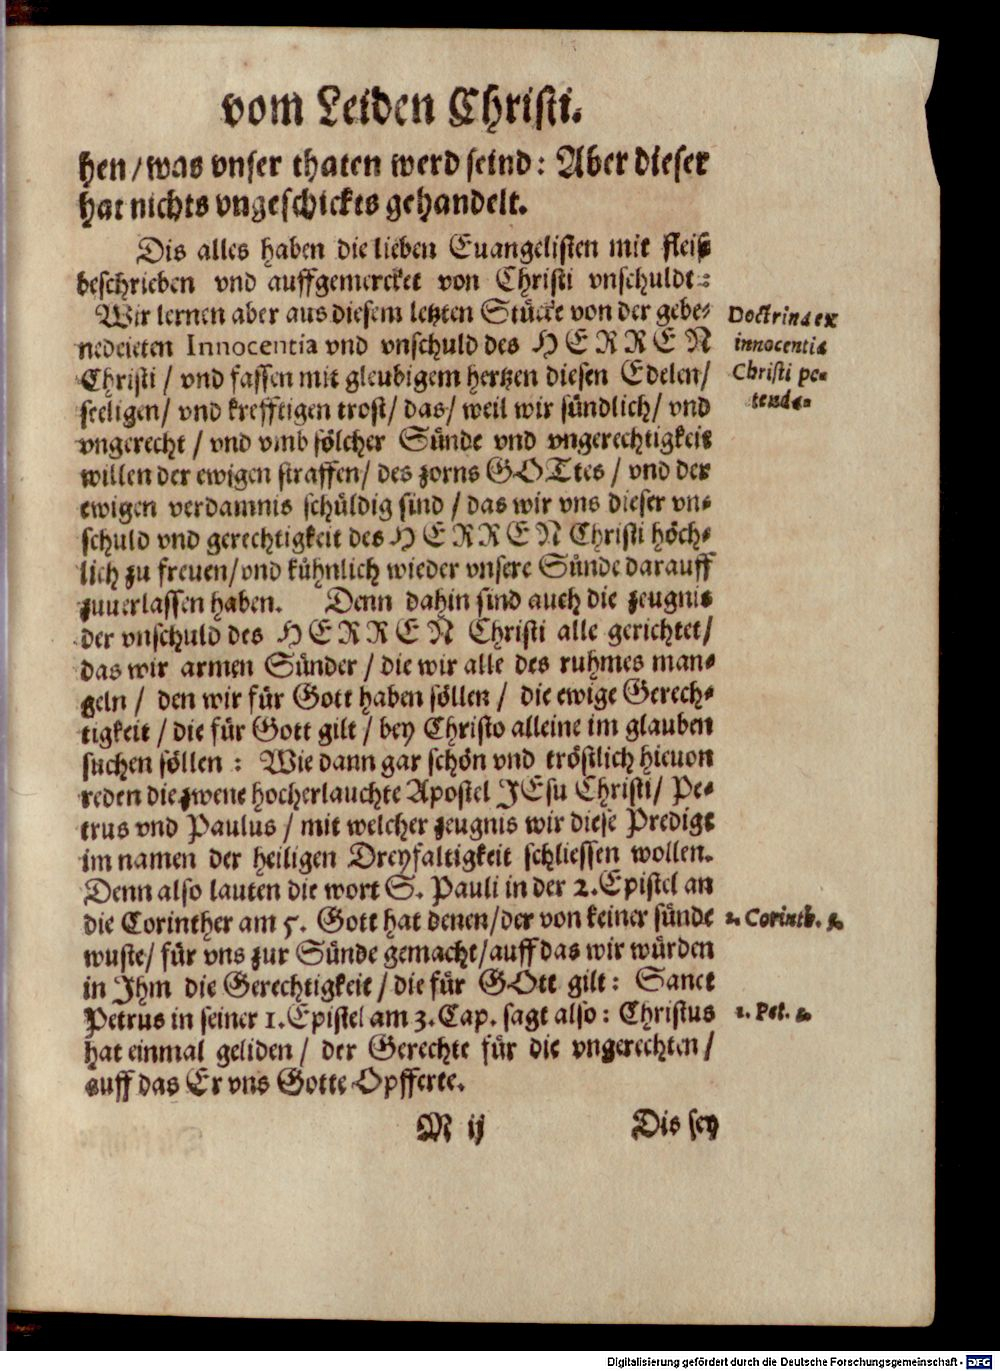 vom Leiden Christi.
hen/was vnser thaten werd seind: Aber dieser
hat nichts vngeschickts gehandelt.
Dis alles haben die lieben Euangelisten mit fleiß
beschrieben vnd auffgemercket von Christi vnschuldt-
Wir lernen aber aus diesem letzten Stücke von der gebe-
nedeieten Innocentia vnd vnschuld des HERREN
Christi/ vnd fassen mit gleubigem hertzen diesen Edelen/
seeligen/ vnd krefftigen trost/ das/ weil wir sündlich/ vnd
vngerecht/ vnd vmb sölcher Sünde vnd vngerechtigkeit
willen der ewigen straffen/ des zorns GOTtes/ vnd der
ewigen verdamnis schüldig sind/ das wir vns dieser vn-
schuld vnd gerechtigkeit des HERREN Christi höch-
lich zu freuen/vnd kühnlich wieder vnsere Sünde darauff
zuuerlassen haben. Denn dahin sind auch die zeugnis
der vnschuld des HERREN Christi alle gerichtet/
das wir armen Sünder/ die wir alle des ruhmes man-
geln/ den wir für Gott haben söllen/ die ewige Gerech-
tigkeit/ die für Gott gilt/ bey Christo alleine im glauben
suchen söllen: Wie dann gar schön vnd tröstlich hieuon
reden die zwene hocherlauchte Apostel JEsu Christi/ Pe-
trus vnd Paulus/ mit welcher zeugnis wir diese Predigt
im namen der heiligen Dreyfaltigkeit schliessen wollen.
Denn also lauten die wort S. Pauli in der 2. Epistel an
die Corinther am 5. Gott hat denen/der von keiner sünde
wuste/ für vns zur Sünde gemacht/auff das wir würden
in Ihm die Gerechtigkeit/ die für GOtt gilt: Sanct
Petrus in seiner 1. Epistel am 3. Cap. sagt also: Christus
hat einmal geliden/ der Gerechte für die vngerechten/
auff das Er vns Gotte Opfferte.
M ij Dis sey
Doctrina ex
innocentia
Christi pe-
tenda-
2. Corinth.
1. Pet.
Digitalisierung gefördert durch die Deutsche Forschungsgemeinschaft - DFG